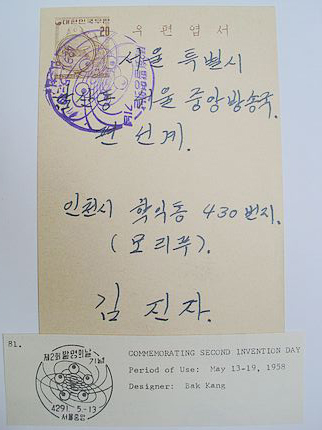 대한민국우편
20
우편엽서
서울 특별시
서울 중앙방송국.
편 선계.
인천시 학익동 430 번지.
(모리푸).
김 진자.
81.
제2회발명의날
기념
4291. 5-13
서울중앙
COMMEMORATING SECOND INVENTION DAY
Period of Use: May 13-19, 1958
Designer: Bak Kang